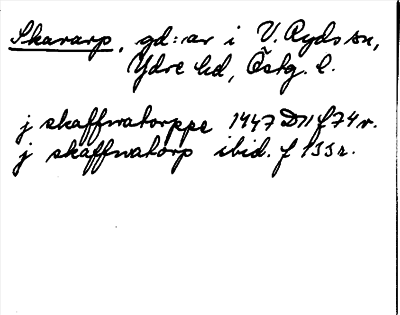 Skararp, gd:ar i V. Ryds sn,
Ydre hd, Östg. l.
j skaffwatorppe 1447 D11 f 74 v.
j skaffwatorp ibid. f 133 r.